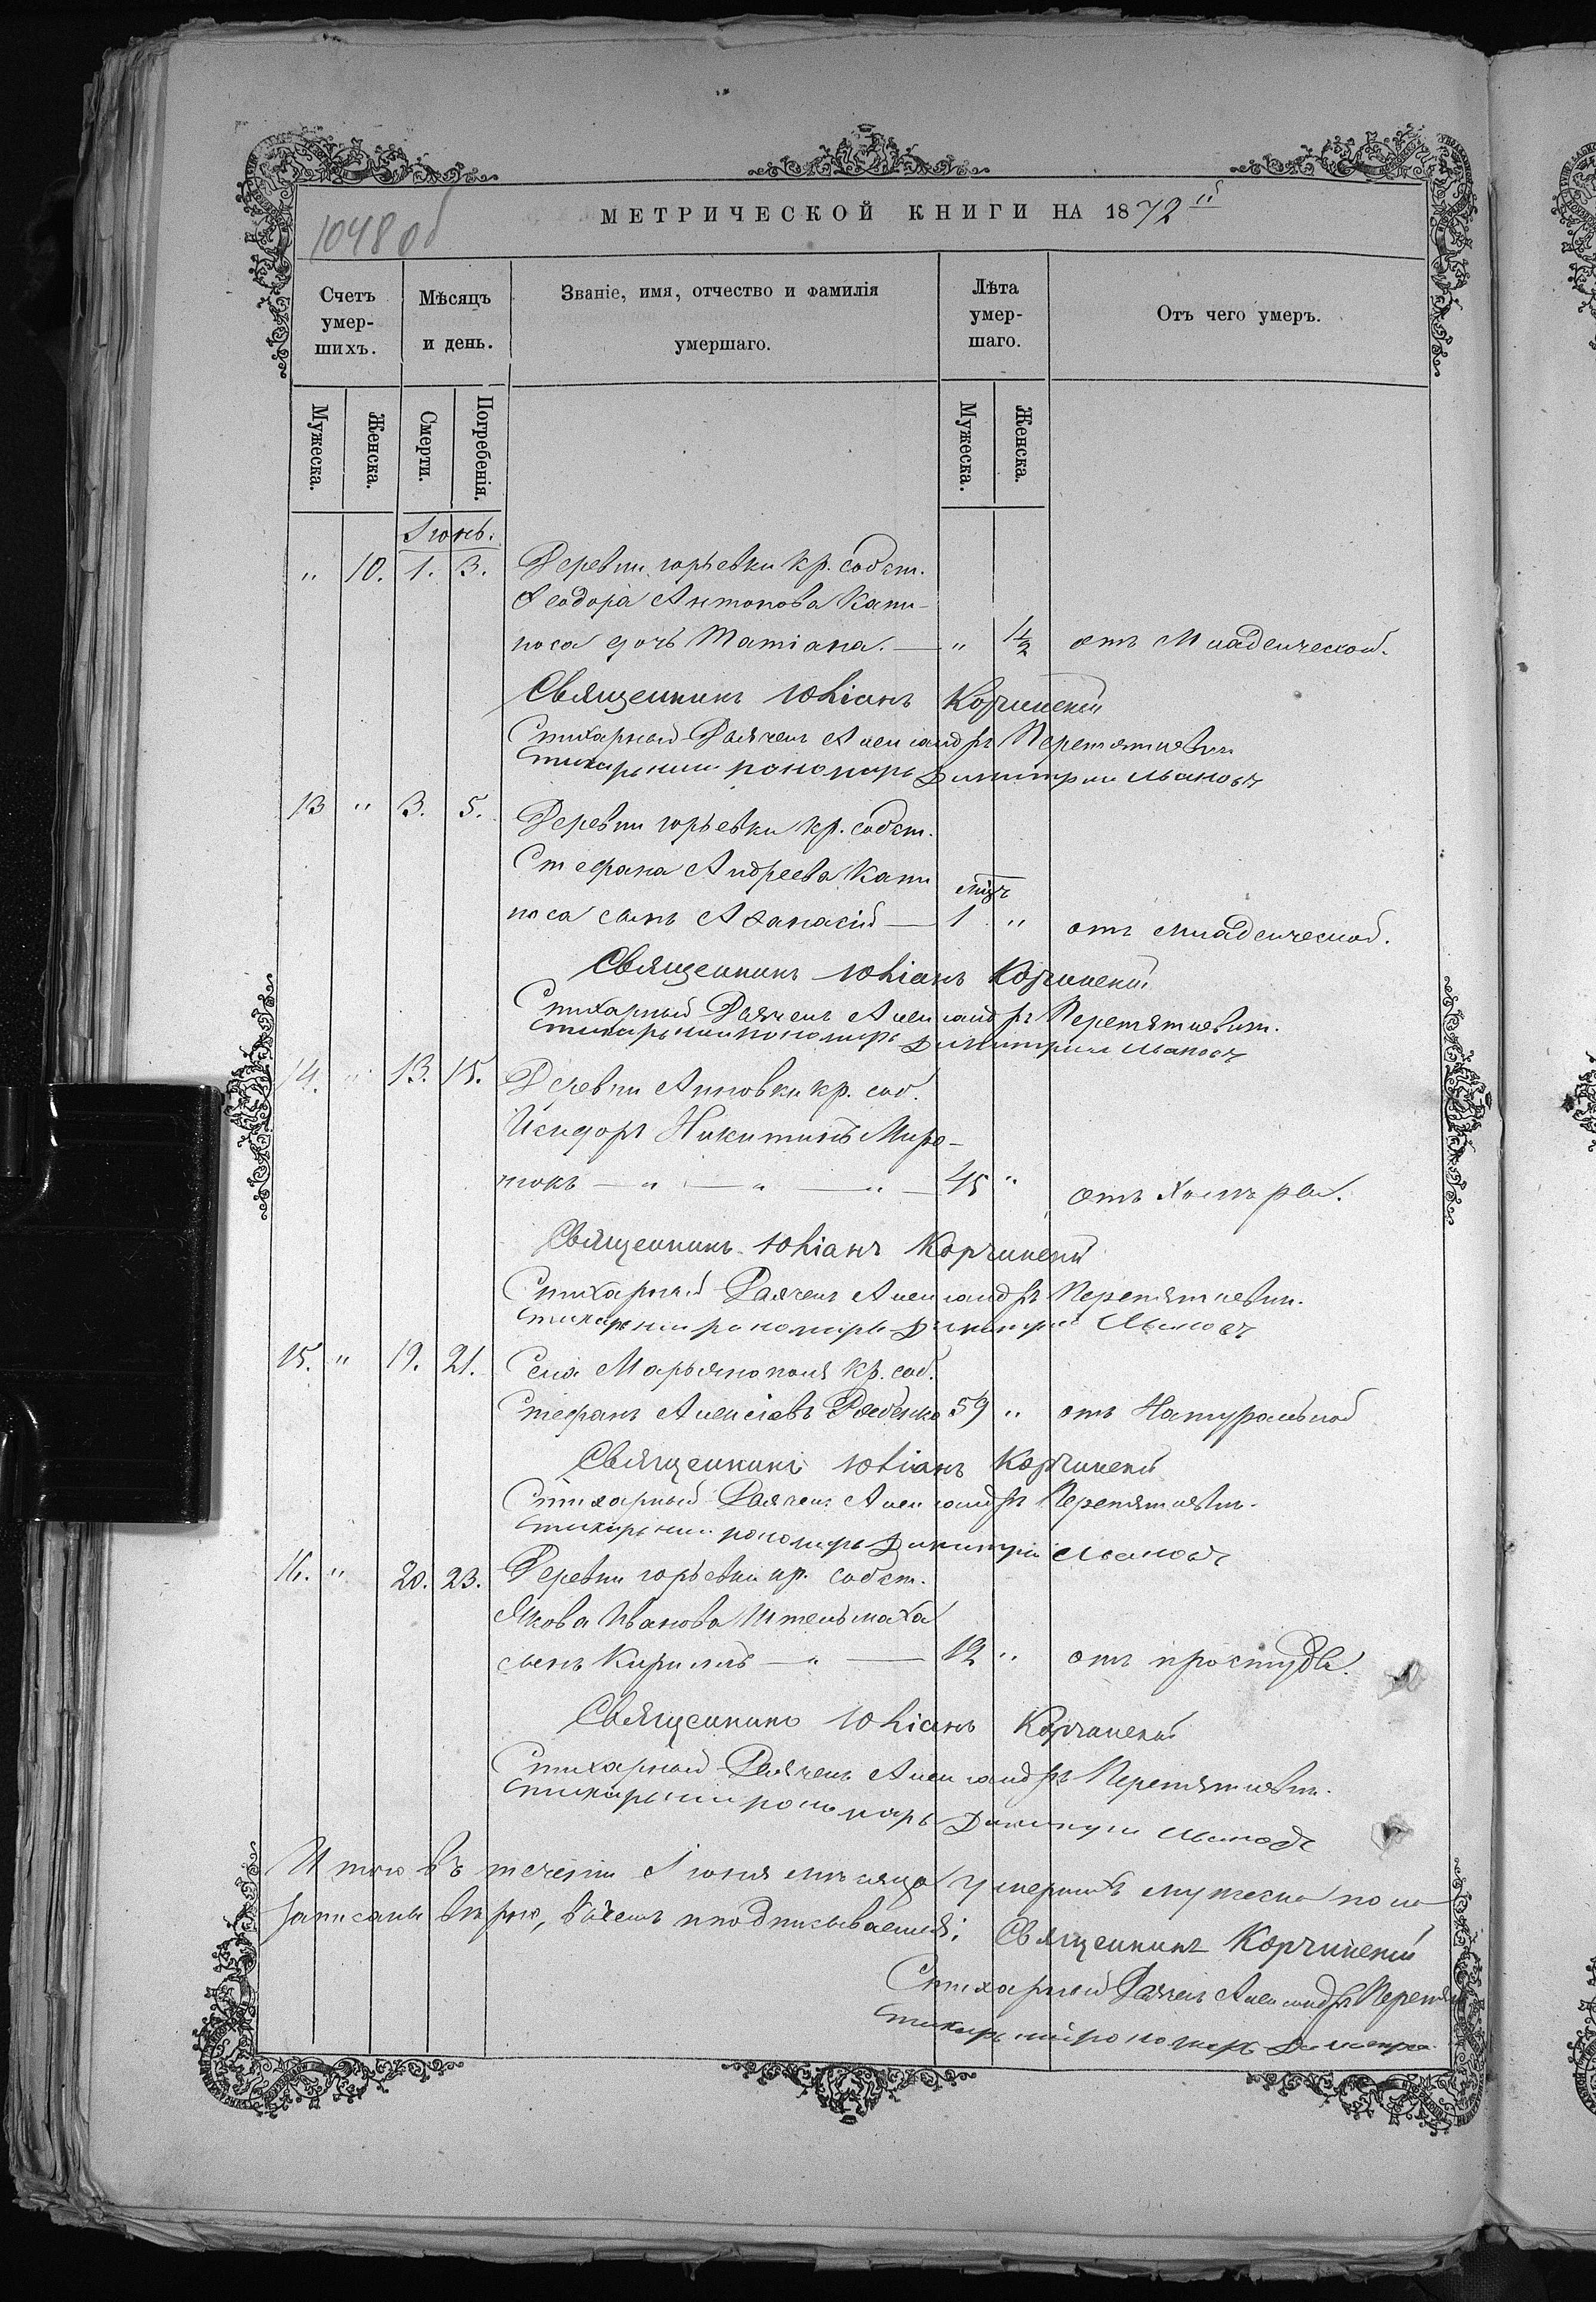 1048 об
МЕТРИЧЕСКОЙ КНИГИ НА 1872
Счетъ умер-шихъ.
Мѣсяцъ и день.
Званіе, имя, отчество и фамилія умершаго.
Лѣта умер-шаго.
Отъ чего умеръ.
Мужеска.
Женска.
Смерти.
Погребенія.
Мужеска.
Женска.
Іюнь.
" 10. 1. 3. Деревни Юрьевки кр. собст.
Ѳеодора Антонова Капи-
носа дочь Татіана. — "
отъ Младенческой.
Священникъ Юліанъ Корчинскій
Стихарный Дьячекъ Александръ Перетятковичъ
Стихарный пономарь Димитрій
13 " 3. 5. Деревни Юрьевки кр. собст.
Стефана Андреева Капи
носа сынъ Аѳанасій — 1 " отъ младенческой.
Священникъ Юліанъ Корчинскій
Стихарный Дьячекъ Александръ Перетятковичъ.
Стихарный пономарь Димитрій
14. " 13. 15. Деревни Анновки кр. соб.
Исидоръ Никитинъ Миро-
— " — " — " — 45 " отъ Холеры.
Священникъ Юліанъ Корчинскій
Стихарный Дьячекъ Александръ Перетятковичъ.
Стихарный пономарь Димитрій
15. " 19. 21. Села Марьянополя кр. соб.
Стефанъ Алексіевъ Рябенко 59 " отъ Натуральной
Священникъ Юліанъ Корчинскій
Стихарный Дьячекъ Александръ Перетятковичъ.
Стихарный пономарь Димитрій
16. " 20. 23. Деревни Юрьевки кр. собст.
Якова Иванова Штельмаха
сынъ Кириллъ — " — 12 " отъ простуды.
Священникъ Юліанъ Корчинскій
Стихарный Дьячекъ Александръ Перетятковичъ.
Стихарный пономарь Димитрій
Итого въ теченіи Іюня мѣсяца умершихъ мужеска пола
записаны вѣрно, въ чемъ и подписываемся: Священникъ Корчинскій
Стихарный Дьячекъ Александръ
Стихарный пономарь Димитрій